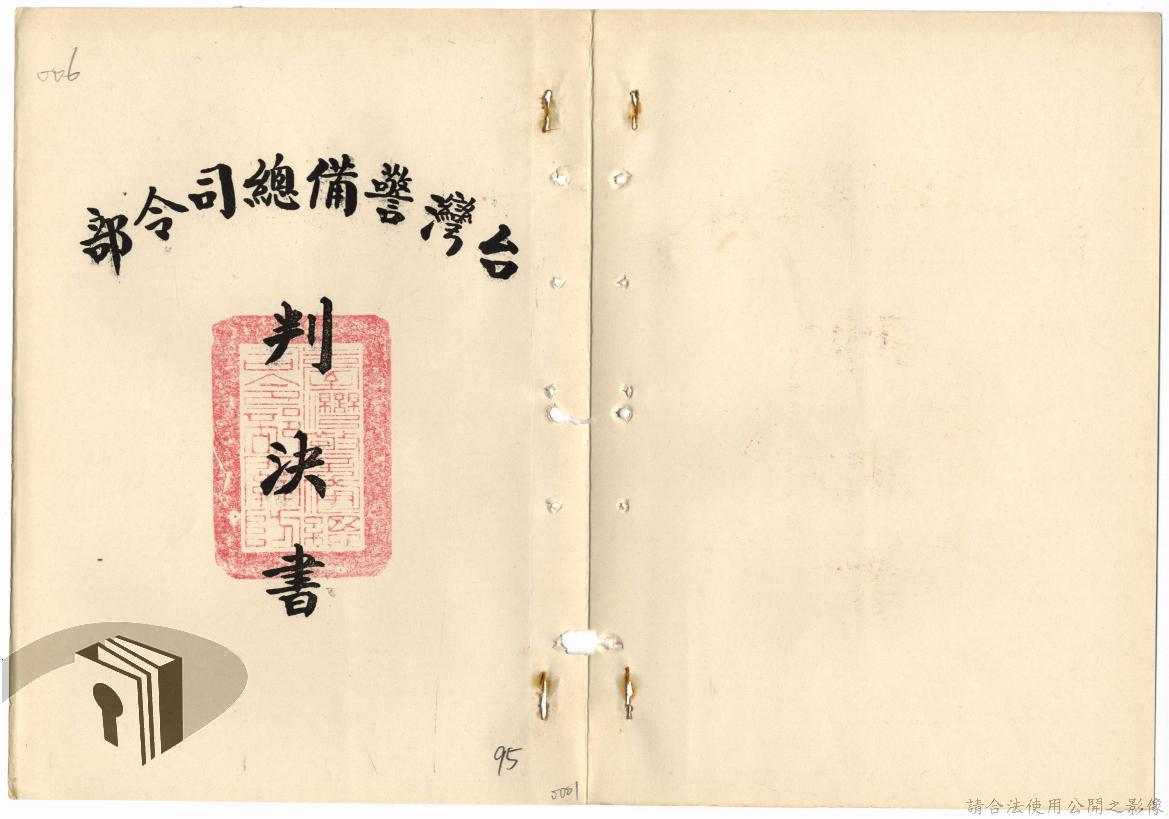 006
台灣警備總司令部
判決書
95
0001
請合法使用公開之影像